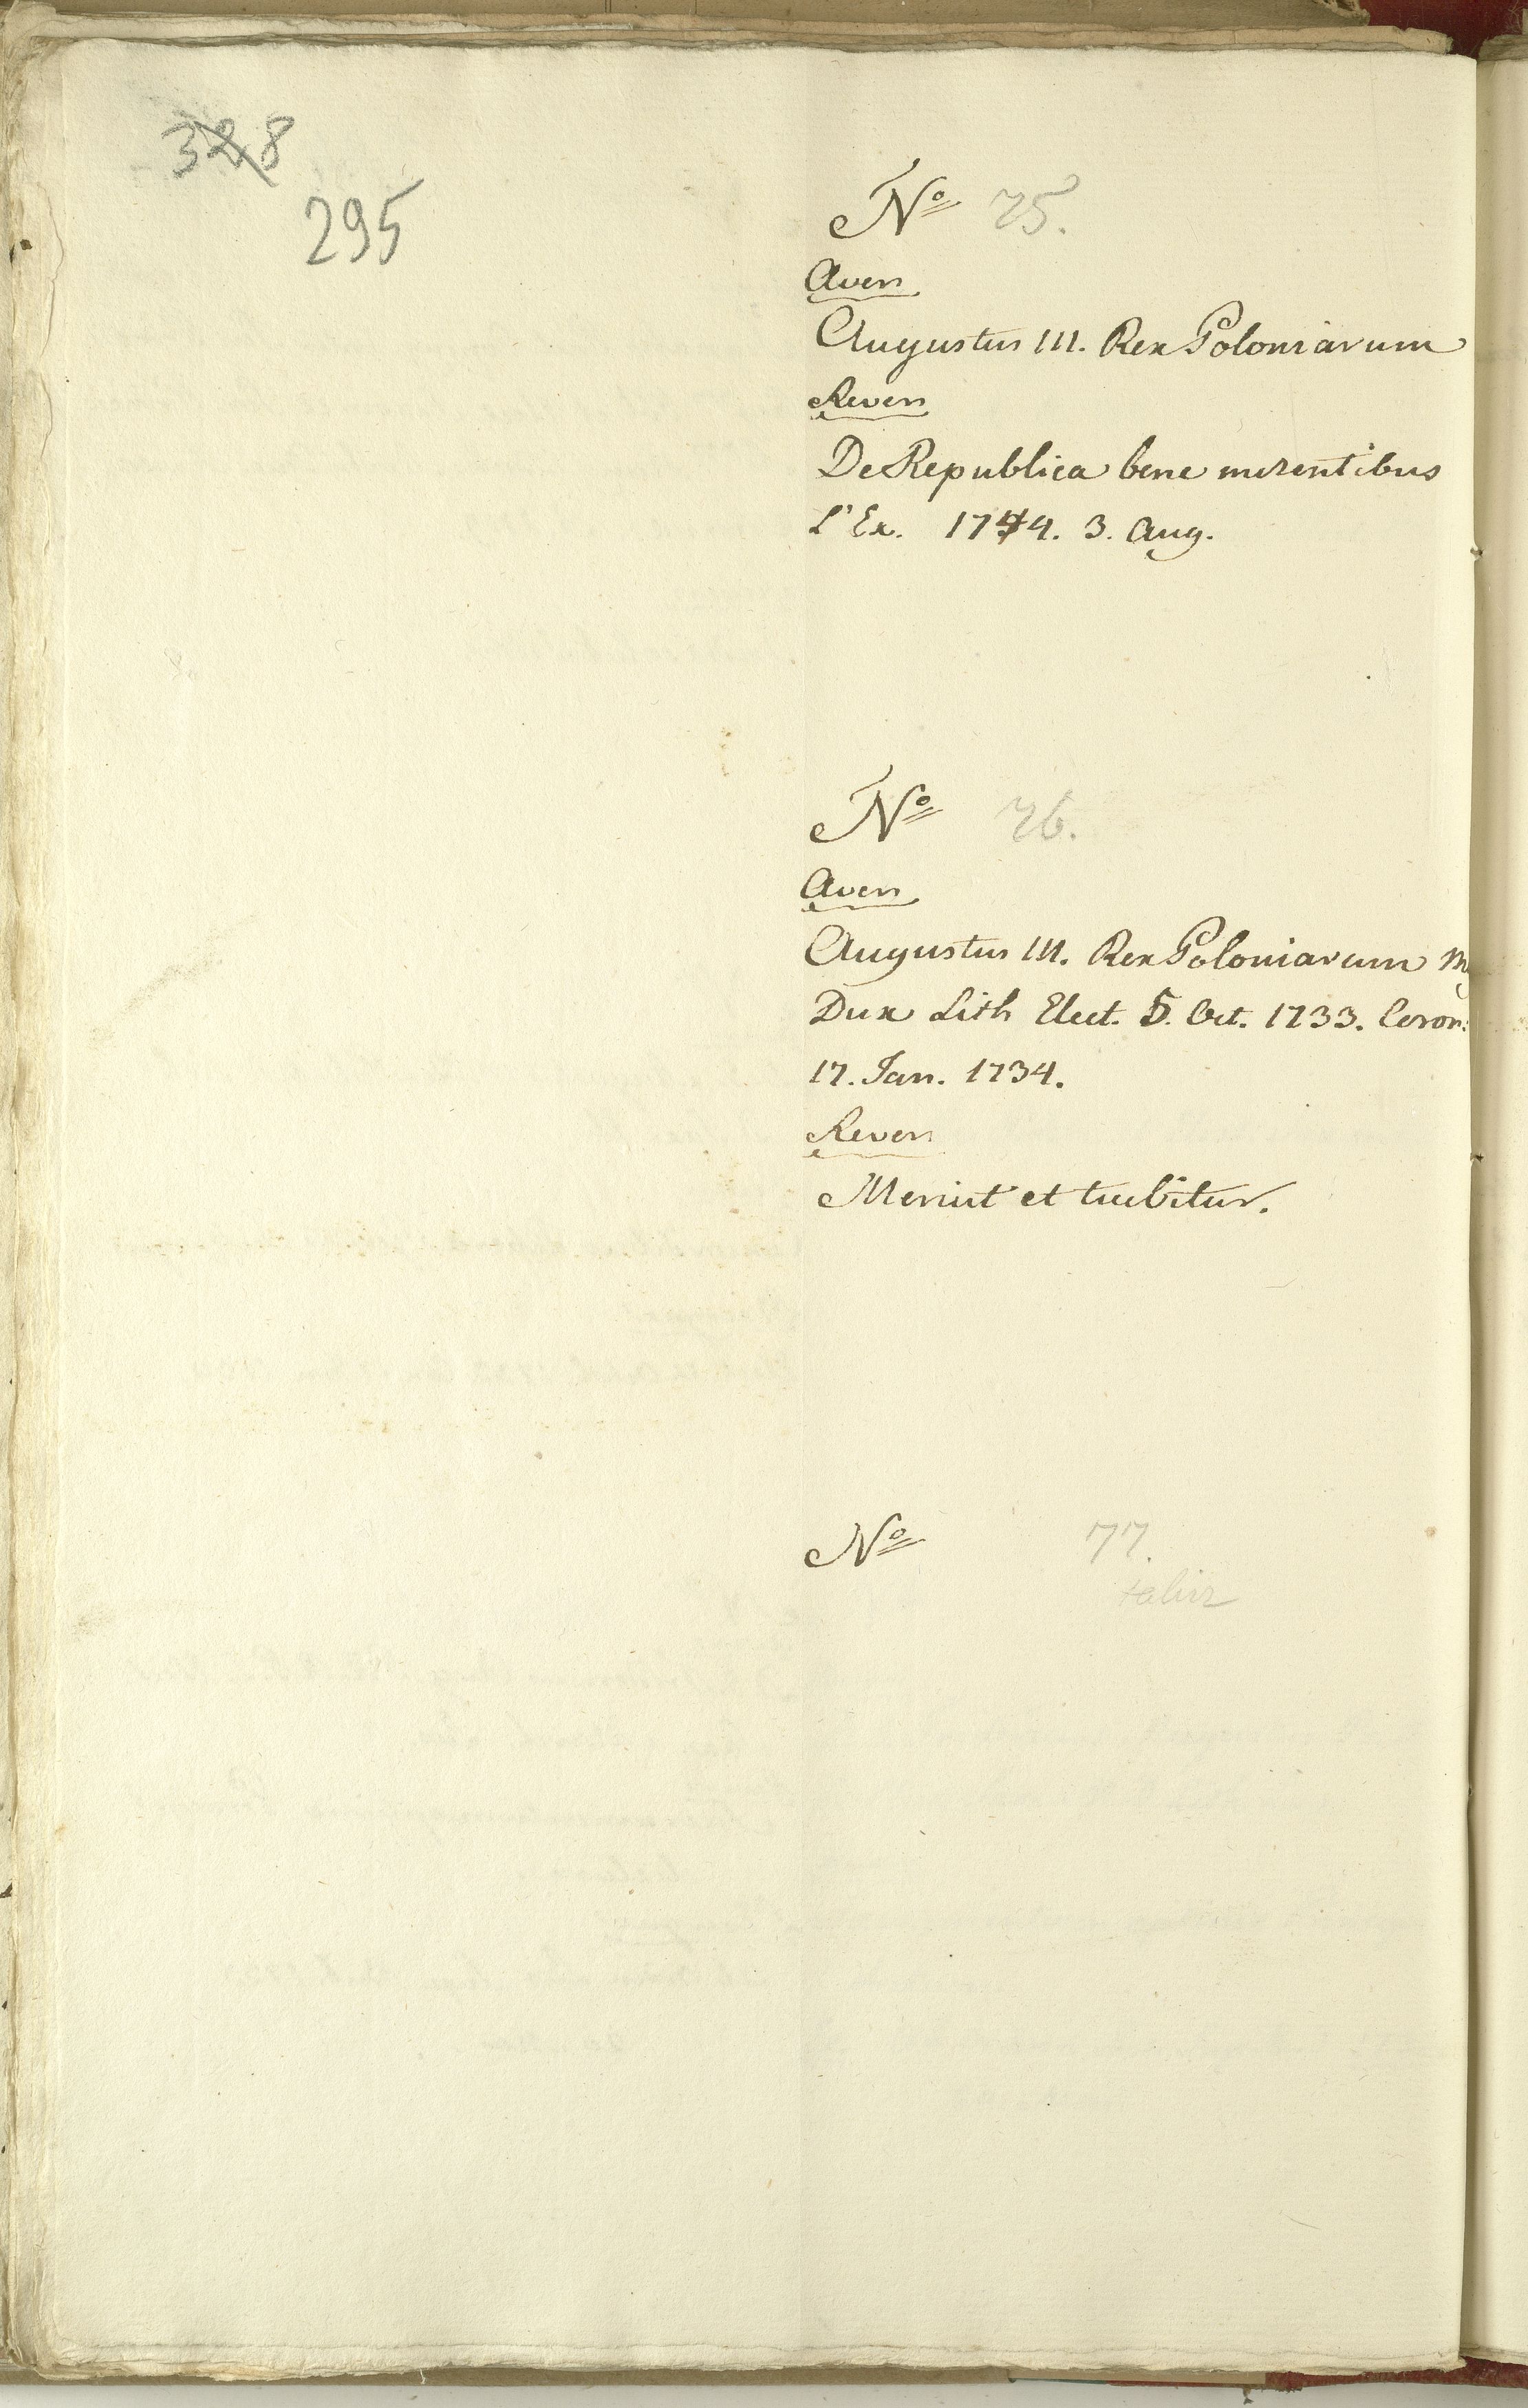 328
295
No 75.
Avers
Augustus III. Rex Poloniarum
Revers
De Republica bene merentibus
L'Ex. 1744. 3. Aug.
No 76.
Avers
Augustus III. Rex Poloniarum M
Dux Lith Elect. 5. Oct. 1733. Coron:
17. Jan. 1734.
Revers
Meruit et tuebitur.
No 77.